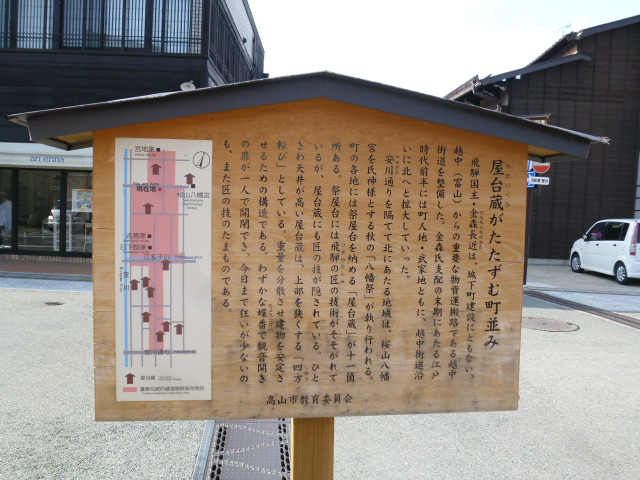 屋台蔵がたたずむ町並み
飛騨国主・金森長近は、城下町建設にともない、
越中（富山）からの重要な物資運搬路である越中
街道を整備した。金森氏支配の末期にあたる江戸
時代前半には町人地・武家地ともに、越中街道沿
いに北へと拡大していった。
安川通りを隔てて北にあたる地域は、桜山八幡
宮を氏神様とする秋の「八幡祭」が執り行われる。
町の各地には祭屋台を納める「屋台蔵」が十一箇
所ある。祭屋台には飛騨の匠の技術がそそがれて
いるが、屋台蔵にも匠の技が隠されている。ひと
きわ天井が高い屋台蔵は、上部を狭くする「四方
転び」としている。重量を分散させ建物を安定さ
せるための構造である。わずかな蝶番で観音開き
の扉が一人で開閉でき、今日まで狂いが少ないの
も、また匠の技のたまものである。
高山市教育委員会
宮地家
現在地
桜山八幡宮
吉島家
日下部家
江名子川
宮川
安川通り
屋台蔵
重要伝統的建造物群保存地区
an enna